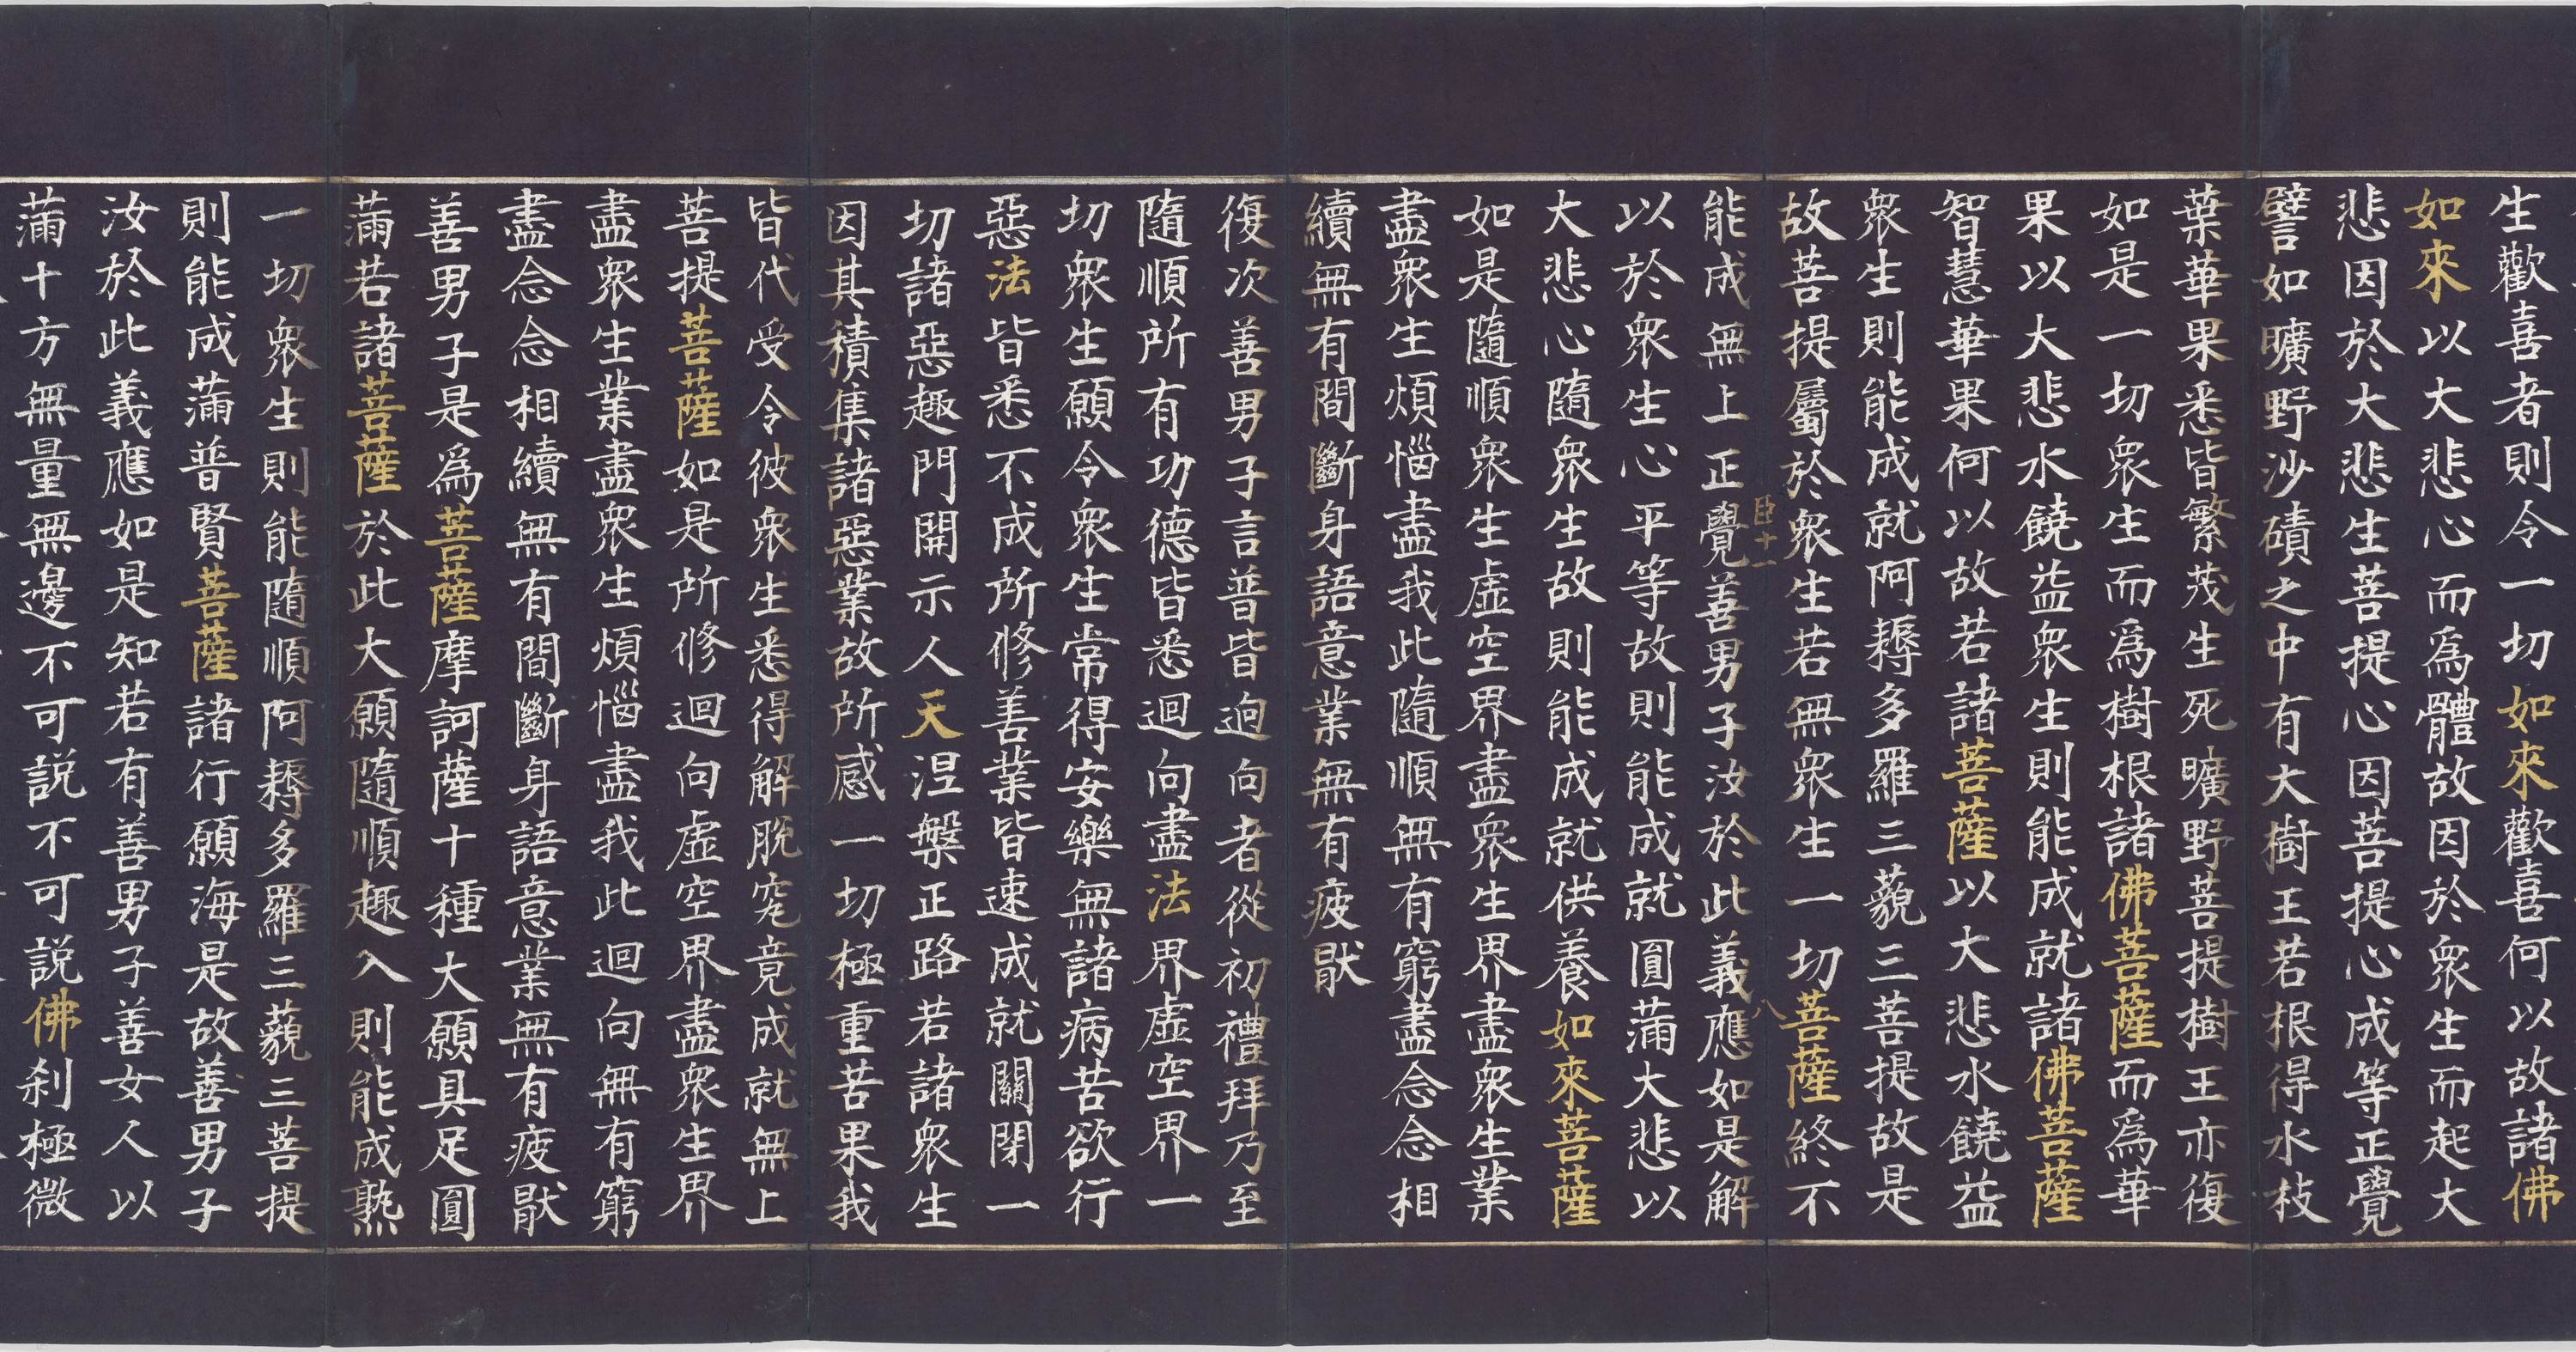 生歡喜者則令一切如來歡喜何以故諸佛
如來以大悲心而爲體故因於衆生而起大
悲因於大悲生菩提心因菩提心成等正覺
譬如曠野沙磧之中有大樹王若根得水枝
葉華果悉皆繁茂生死曠野菩提樹王亦復
如是一切衆生而爲樹根諸佛菩薩而爲華
果以大悲水饒益衆生則能成就諸佛菩薩
智慧華果何以故若諸菩薩以大悲水饒益
衆生則能成就阿耨多羅三藐三菩提故是
故菩提屬於衆生若無衆生一切菩薩終不
臣十一 八
能成無上正覺善男子汝於此義應如是解
以於衆生心平等故則能成就圓滿大悲以
大悲心隨衆生故則能成就供養如來菩薩
如是隨順衆生虛空界盡衆生界盡衆生業
盡衆生煩惱盡我此隨順無有窮盡念念相
續無有間斷身語意業無有疲猒
復次善男子言普皆迴向者從初禮拜乃至
隨順所有功德皆悉迴向盡法界虛空界一
切衆生願令衆生常得安樂無諸病苦欲行
惡法皆悉不成所修善業皆速成就關閉一
切諸惡趣門開示人天涅槃正路若諸衆生
因其積集諸惡業故所感一切極重苦果我
皆代受令彼衆生悉得解脫究竟成就無上
菩提菩薩如是所修迴向虛空界盡衆生界
盡衆生業盡衆生煩惱盡我此迴向無有窮
盡念念相續無有間斷身語意業無有疲猒
善男子是爲菩薩摩訶薩十種大願具足圓
滿若諸菩薩於此大願隨順趣入則能成熟
一切衆生則能隨順阿耨多羅三藐三菩提
則能成滿普賢菩薩諸行願海是故善男子
汝於此義應如是知若有善男子善女人以
滿十方無量無邊不可説不可説佛剎極微